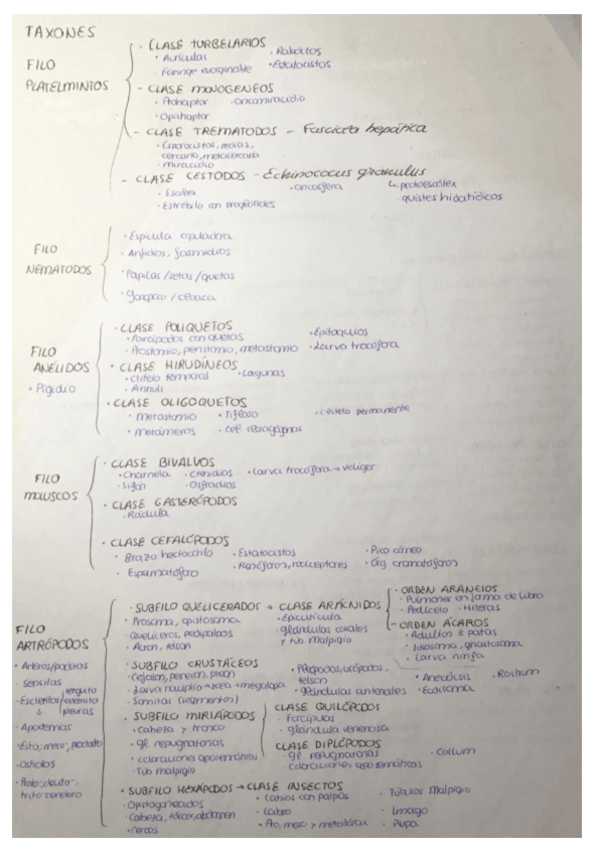 TAXONES
FILO PLATELMINTOS
· CLASE TURBELARIOS
· Aurículas · Rabditos
· Faringe evaginable · Estatocistos
- CLASE MONOGENEOS
· Prohaptor · Oncomiracidio
· Opishaptor
- CLASE TREMATODOS - Fasciola hepática
· Esporocistos, redias,
cercaria, metacercaria
· miracidio
- CLASE CESTODOS - Echinococus granulus
· Escólex · oncosfera ↳ protoescólex
· Estróbilo con proglótides · quistes hidatídicos
FILO NEMATODOS
· Espícula copuladora
· Anfidios, fasmidios
· Papilas / setas / quetas
FILO ANÉLIDOS
· Pigidio
· CLASE POLIQUETOS
· Parápodos con quetas · Epitoquios
· Prostomio, peristomio, metastomio · Larva trocófora
· CLASE HIRUDÍNEOS
· Clitelo temporal · Lagunas
· Annuli
· CLASE OLIGOQUETOS
· Metastomio · Tiflosol · Clitelo permanente
· Metámeros · cél. cloragógenas
FILO MOLUSCOS
· CLASE BIVALVOS
· Charnela · Ctenidios · Larva trocófora → véliger
· Sifón · Osfradios
· CLASE GASTERÓPODOS
· Rádula
· CLASE CEFALÓPODOS
· Brazo hectocotilo · Estatocistos · Pico córneo
· Espermatóforo · Rinóforos, nociceptores · Órg. cromatóforos
FILO ARTRÓPODOS
· Artejos/poditos
· Sensilas
· Escleritos / terguito / esternito / pleuras
· Apodemas
· Ostiolos
· Proto-deuto-
trito cerebro
· SUBFILO QUELICERADOS → CLASE ARÁCNIDOS
· Prosoma, opistosoma · Epicutícula
· Quelíceros, pedipalpos · glándulas coxales
y tub malpigio
· ORDEN ARANEIDS
· Pulmones en forma de libro
· Pedicelo · Hileras
- ORDEN ÁCAROS
· Adultos 8 patas
· Idiosoma, gnatosoma
· Larva ninfa
· SUBFILO CRUSTÁCEOS
· Cefalon, pereion, pleon · Pleópodos, urópodos, telson
· Larva nauplio → zoea → megalopa · glándulas antenales
· Somitas (segmentos)
· Anecdisis · Rostrum
· Ecdisoma
· SUBFILO MIRIÁPODOS
· Cabeza y tronco
· gl. repugnatorias
· coloraciones aposemáticas
· Tub malpigio
CLASE QUILÓPODOS
· Forcípulas
· glándula venenosa
CLASE DIPLÓPODOS
· gl. repugnatorias · Collum
· coloraciones aposemáticas
· SUBFILO HEXÁPODOS → CLASE INSECTOS
· Opistogoneados · Labios con palpos · Túbulos Malpigio
· Cabeza, tórax, abdomen · Labro · Imago
· Cercos · Pro, meso y metatórax · Pupa